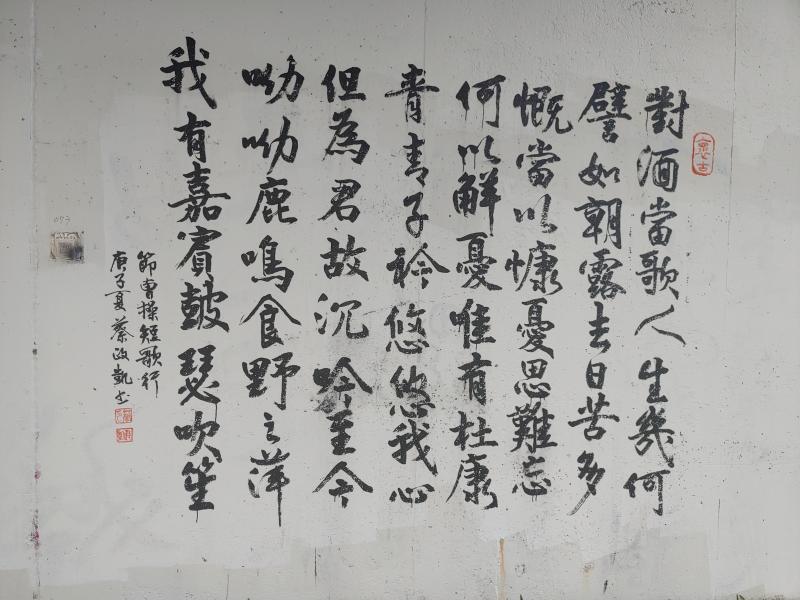 對酒當歌人生幾何
譬如朝露去日苦多
慨當以慷憂思難忘
何以解憂唯有杜康
青青子衿悠悠我心
但為君故沉吟至今
呦呦鹿鳴食野之萍
我有嘉賓鼓瑟吹笙
節曹操短歌行
庚子夏蔡政凱書